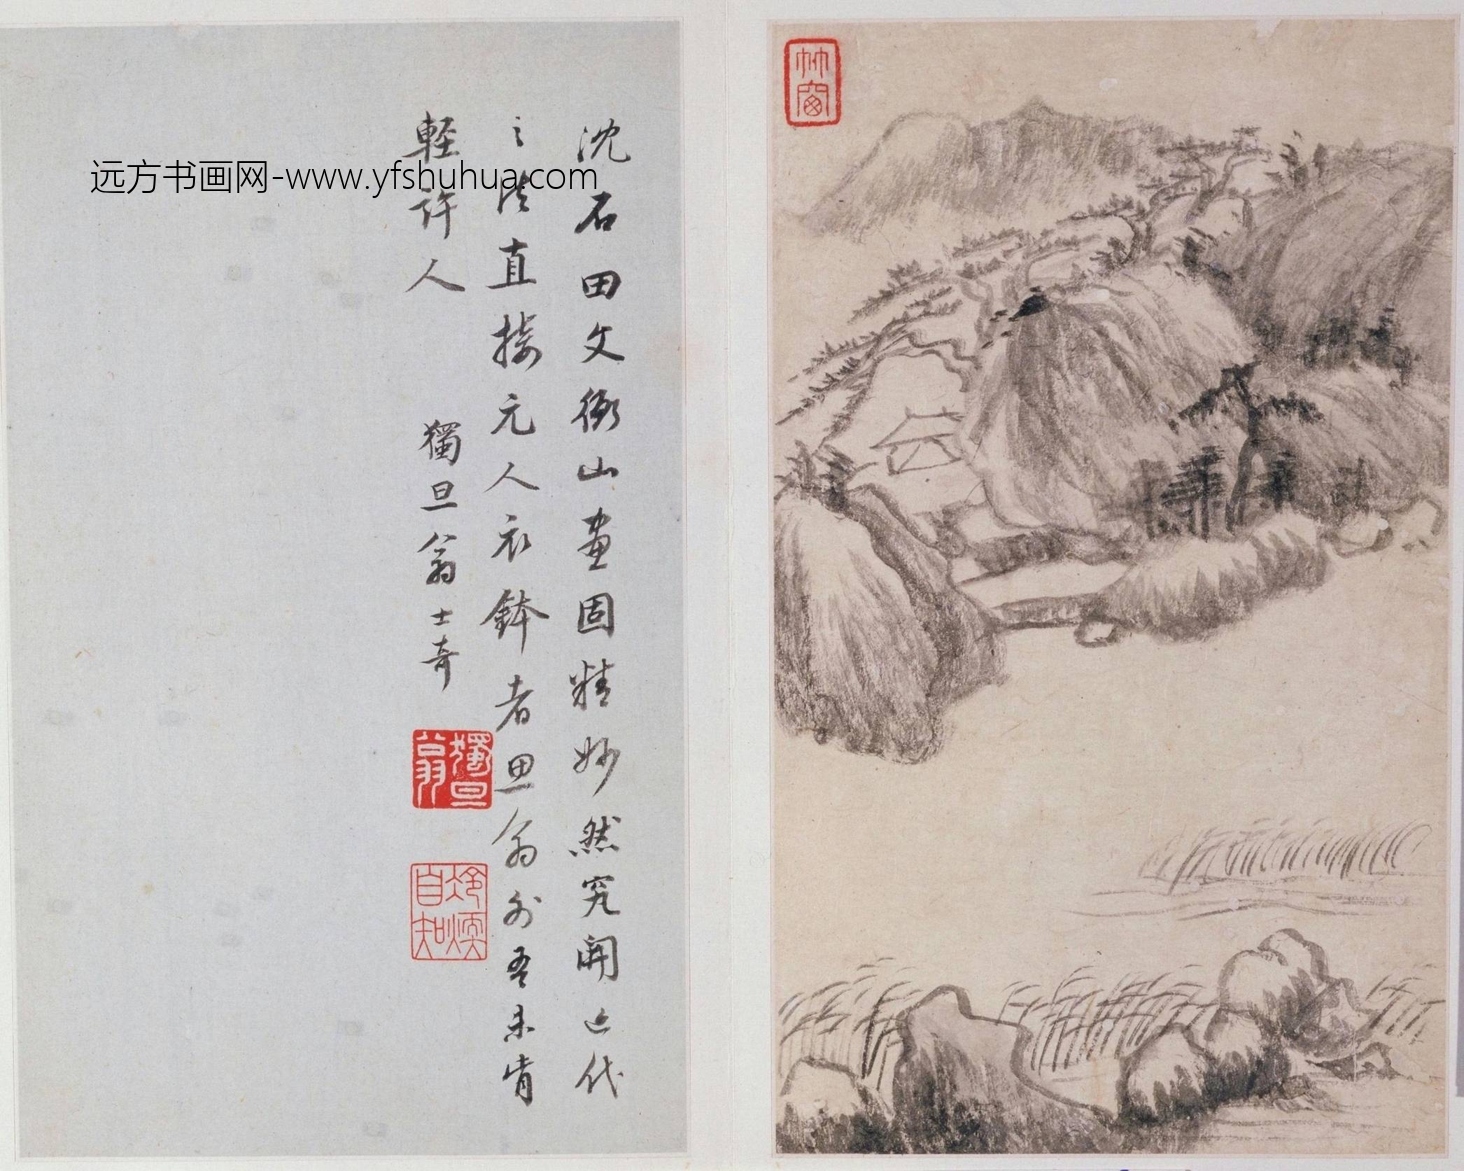 沈石田文衡山畫固精妙然究開近代
之法直接元人衣鉢者思翁外吾未肯
輕許人
獨旦翁士奇
獨旦翁
竹窗
远方书画网-www.yfshuhua.com